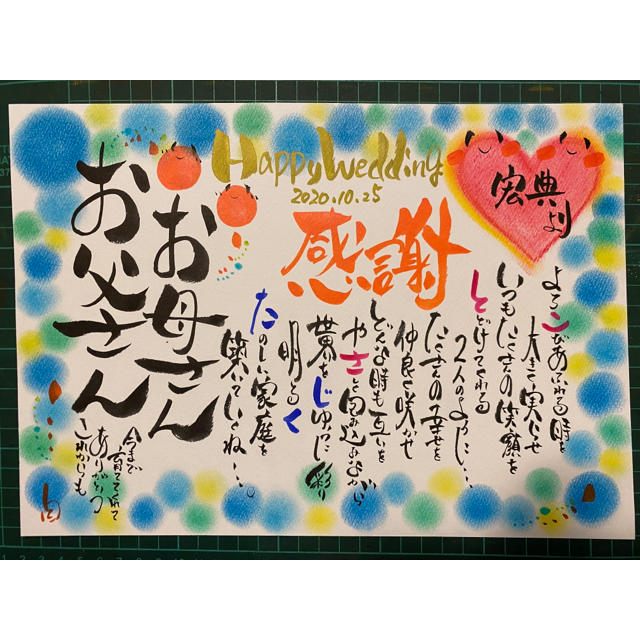 Happy Wedding
2020.10.25
感謝
宏典
より
よろこびあふれる時を
大きく実らせ
いつもたくさんの笑顔を
とどけてくれる
2人のように…
たくさんの幸せを
仲良く咲かせ
どんな時も互いを
やさしさと包み込みながら
世界をじゆうに彩り
明るく
たのしい家庭を
築いていくね…
お母さん
お父さん
今まで
育ててくれて
ありがとう
これからも